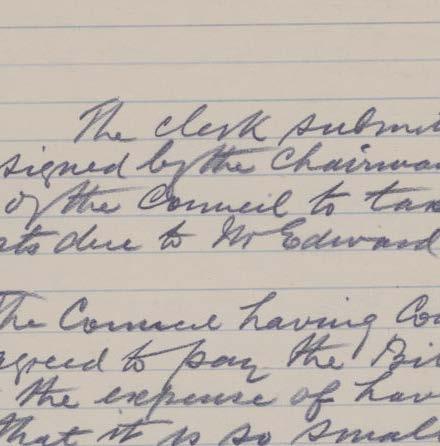 The clerk submit
signed by the Chairman
of the Council to tak
sts due to Mr Edward
The Council having Co
agreed to pay the Bil
the expense of hav
that it is so small